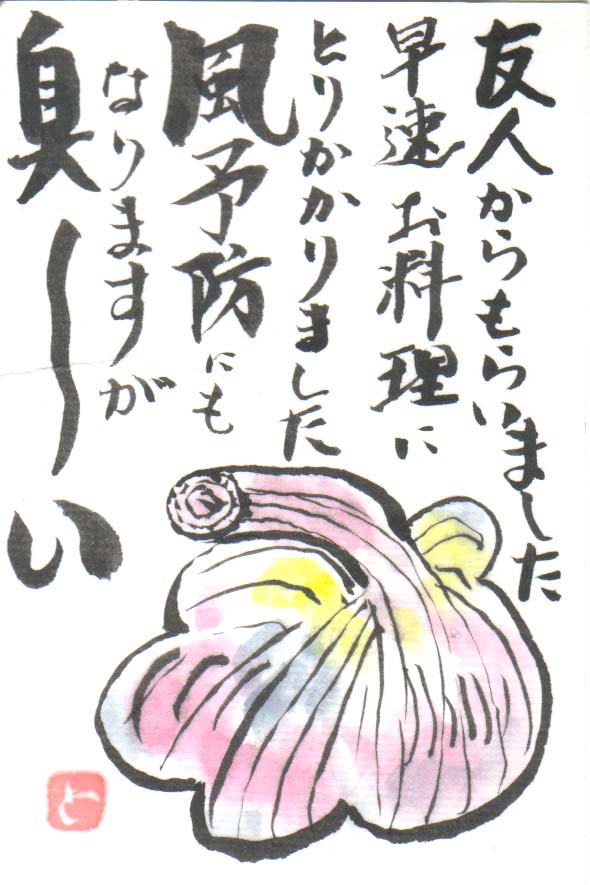 友人からもらいました
早速お料理に
とりかかりました
風予防にも
なりますが
臭〜い
と